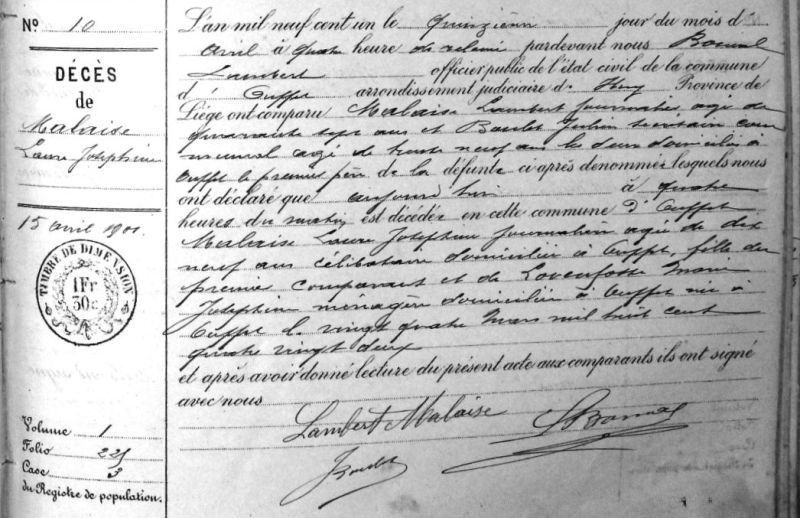 N° 10
DÉCÈS
de
Malaise
Laure Joséphine
15 avril 1901.
TIMBRE DE DIMENSION
1 Fr
30c
Volume 1
Folio 225
Case 3
du Registre de population.
L'an mil neuf cent un le quinzième jour du mois d'
avril à quatre heure de relevée pardevant nous Bonmal
Lambert officier public de l'état civil de la commune
d' Ouffet arrondissement judiciaire de Huy Province de
Liége ont comparu Malaise Lambert Journalier agé de
quarante sept ans et Boulet Julien secrétaire com
munal agé de trente neuf ans les deux domiciliés à
Ouffet le premier père de la défunte ci après dénommée lesquels nous
ont déclaré que aujourd'hui à quatre
heures du matin est décédée en cette commune d' Ouffet
Malaise Laure Joséphine Journalière agée de dix
neuf ans célibataire domiciliée à Ouffet, fille du
premier comparant et de Lavenfosse Marie
Joséphine ménagère domiciliée à Ouffet née à
Ouffet le vingt quatre Mars mil huit cent
quatre vingt deux
et après avoir donné lecture du présent acte aux comparants ils ont signé
avec nous
Lambert Malaise
LBonmal
JBoulet